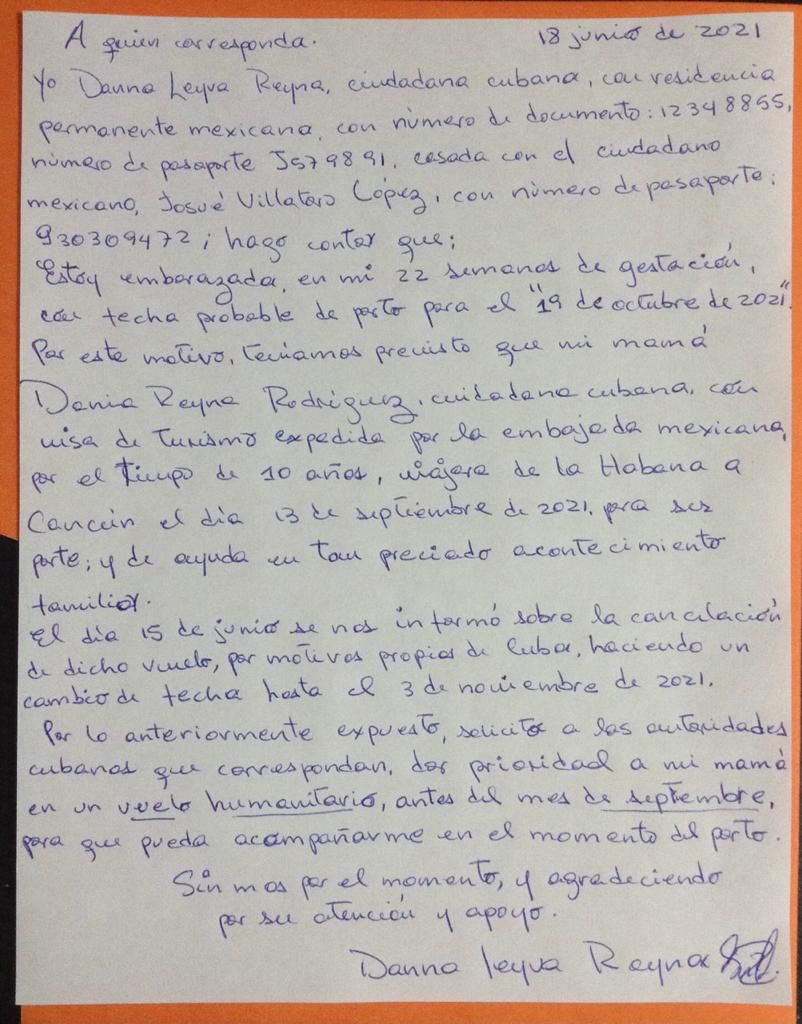 A quien corresponda. 18 junio de 2021
Yo Danna Leyva Reyna, ciudadana cubana, con residencia
permanente mexicana, con número de documento: 12348855,
número de pasaporte J579891, casada con el ciudadano
mexicano, Josué Villatoro López, con número de pasaporte:
930309472; hago contar que;
Estoy embarazada, en mi 22 semanas de gestación,
con fecha probable de parto para el "19 de octubre de 2021".
Por este motivo, teníamos previsto que mi mamá
Dania Reyna Rodríguez, ciudadana cubana, con
visa de Turismo expedida por la embajada mexicana,
por el tiempo de 10 años, viajara de la Habana a
Cancún el día 13 de septiembre de 2021, para ser
parte; y de ayuda en tan preciado acontecimiento
familiar.
El día 15 de junio se nos informó sobre la cancelación
de dicho vuelo, por motivos propios de Cuba, haciendo un
cambio de fecha hasta el 3 de noviembre de 2021.
Por lo anteriormente expuesto, solicito a las autoridades
cubanas que correspondan, dar prioridad a mi mamá
en un vuelo humanitario, antes del mes de septiembre,
para que pueda acompañarme en el momento del parto.
Sin mas por el momento, y agradeciendo
por su atención y apoyo.
Danna Leyva Reyna